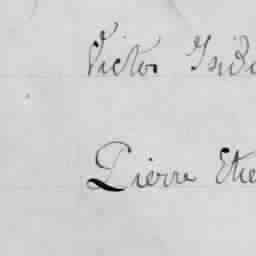 Victor Isid
Pierre Etie